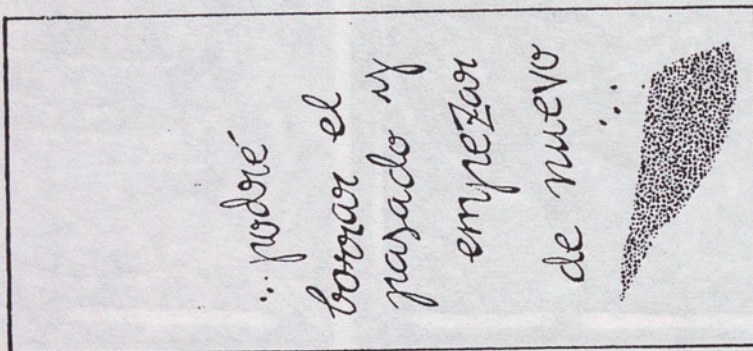 ...podré
borrar el
pasado y
empezar
de nuevo
...